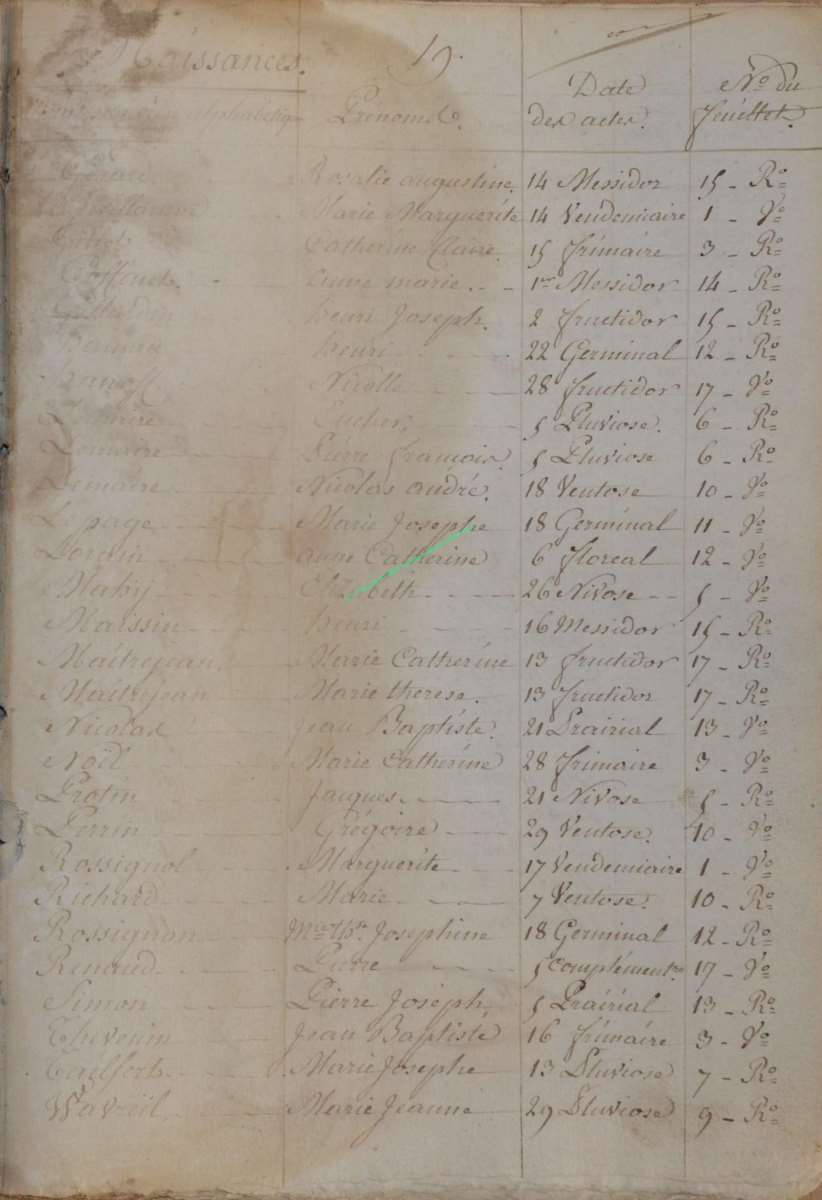 Naissances.
19.
Date des actes.
No. du feuillet.
alphabétique Prénoms.
Rosalie augustine. 14 Messidor 15 - Ro
Marie Marguerite 14 Vendemiaire 1 - Vo
Catherine Claire. 15 frimaire 3 - Ro
anne marie. 1er Messidor 14 - Ro
henri Joseph. 2 fructidor 15 - Ro
henri 22 Germinal 12 - Ro
Nicolle 28 fructidor 17 - Vo
5 Pluviose. 6 - Ro
Lemaire Pierre francois. 5 Pluviose 6 - Ro
Lemaire Nicolas andré. 18 Ventose 10 - Vo
Lepage Marie Josephe 18 Germinal 11 - Vo
anne Catherine 6 floreal 12 - Vo
Mahy Elizabeth 26 Nivose 5 - Vo
Maissin henri 16 Messidor 15 - Ro
Maitrejean. Marie Catherine 13 fructidor 17 - Ro
Maitrejean Marie therese. 13 fructidor 17 - Ro
Nicolas Jean Baptiste. 21 Prairial 13 - Vo
Noël Marie Catherine 28 frimaire 3 - Vo
Protin Jacques 21 Nivose 5 - Ro
Perrin Grégoire 29 Ventose. 10 - Vo
Rossignol Marguerite 17 Vendemiaire 1 - Vo
Richard Marie 7 Ventose. 10 - Ro
Rossignon Josephine 18 Germinal 12 - Ro
Renaud Pierre 5 complémentre 17 - Vo
Simon Pierre Joseph, 5 Prairial 13 - Ro
Thevenin Jean Baptiste 16 frimaire 3 - Vo
Marie Josephe 13 Pluviose 7 - Ro
Marie Jeanne 29 Pluviose 9 - Ro